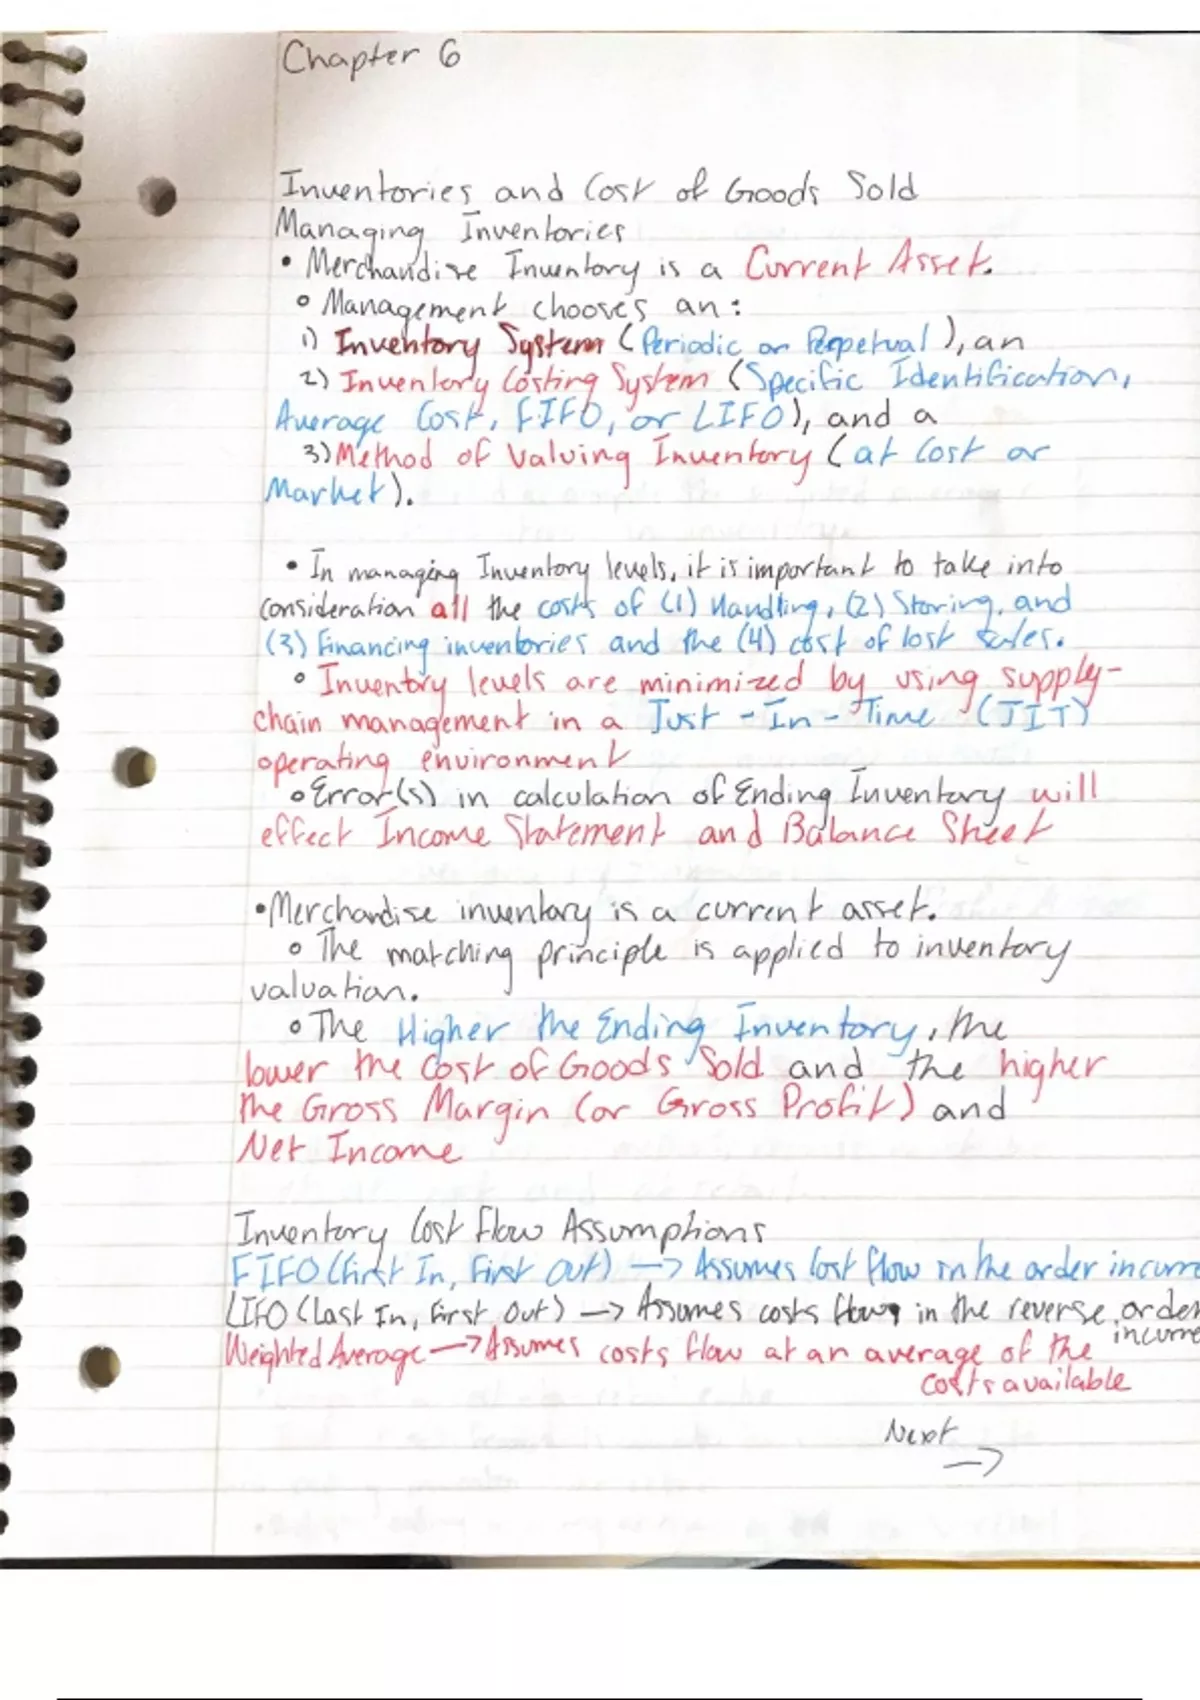 Chapter 6
Inventories and Cost of Goods Sold
Managing Inventories
• Merchandise Inventory is a Current Asset.
◦ Management chooses an:
1) Inventory System (Periodic or Perpetual), an
2) Inventory Costing System (Specific Identification,
Average Cost, FIFO, or LIFO), and a
3) Method of Valuing Inventory (at Cost or
Market).
• In managing Inventory levels, it is important to take into
consideration all the costs of (1) Handling, (2) Storing, and
(3) financing inventories and the (4) cost of lost sales.
◦ Inventory levels are minimized by using supply-
chain management in a Just-In-Time (JIT)
operating environment
◦ Error(s) in calculation of Ending Inventory will
effect Income Statement and Balance Sheet
• Merchandise inventory is a current asset.
◦ The matching principle is applied to inventory
valuation.
◦ The Higher the Ending Inventory, the
lower the Cost of Goods Sold and the higher
the Gross Margin (or Gross Profit) and
Net Income
Inventory Cost Flow Assumptions
FIFO (First In, First Out) → Assumes Cost flow in the order incurre
LIFO (Last In, First Out) → Assumes costs flow in the reverse order
incurre
Weighted Average → Assumes costs flow at an average of the
costs available
Next
→